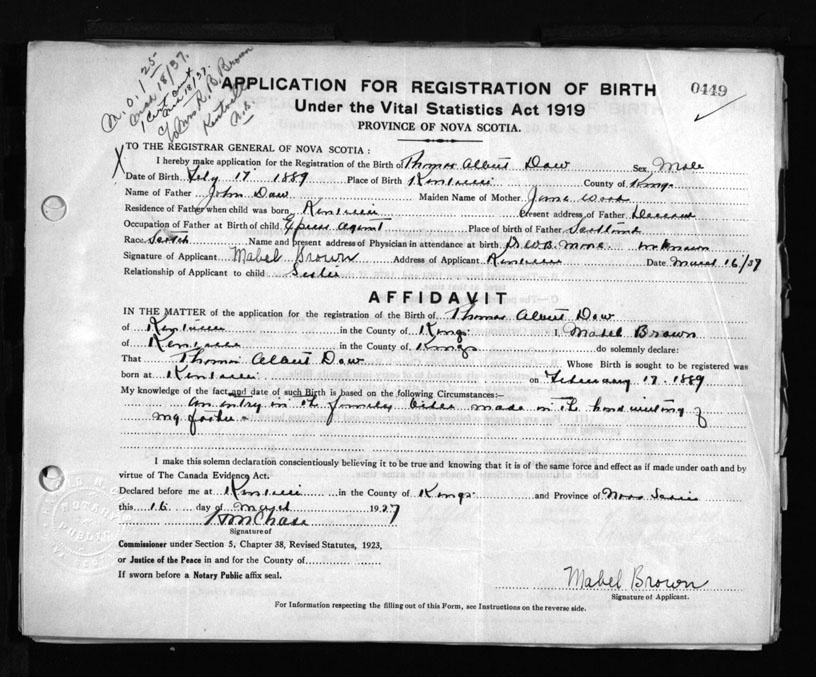 M.O. 1.25
APPLICATION FOR REGISTRATION OF BIRTH
0449
Under the Vital Statistics Act 1919
PROVINCE OF NOVA SCOTIA.
TO THE REGISTRAR GENERAL OF NOVA SCOTIA:
I hereby make application for the Registration of the Birth of Thomas Albert Daw Sex, Male
Date of Birth, July 17 1889 Place of Birth Kentville County of Kings
Name of Father John Daw Maiden Name of Mother, Jane Wood
Residence of Father when child was born, Kentville Present address of Father, Deceased
Occupation of Father at Birth of child, Express Agent Place of birth of Father Scotland
Race, Scotch Name and present address of Physician in attendance at birth, unknown
Signature of Applicant Mabel Brown Address of Applicant Kentville Date March 16/37
Relationship of Applicant to child Sister
AFFIDAVIT
IN THE MATTER of the application for the registration of the Birth of Thomas Albert Daw
of Kentville in the County of Kings I, Mabel Brown
of Kentville in the County of Kings do solemnly declare:
That Thomas Albert Daw Whose Birth is sought to be registered was
born at Kentville on February 17. 1889
My knowledge of the fact and date of such Birth is based on the following Circumstances:—
An entry in the family bible made in the handwriting of
my father.
I make this solemn declaration conscientiously believing it to be true and knowing that it is of the same force and effect as if made under oath and by
virtue of The Canada Evidence Act.
Declared before me at Kentville in the County of Kings and Province of Nova Scotia
this 16 day of March 1937
Signature of
Commissioner under Section 5, Chapter 38, Revised Statutes, 1923,
or Justice of the Peace in and for the County of
If sworn before a Notary Public affix seal.
Mabel Brown
Signature of Applicant.
For Information respecting the filling out of this Form, see Instructions on the reverse side.